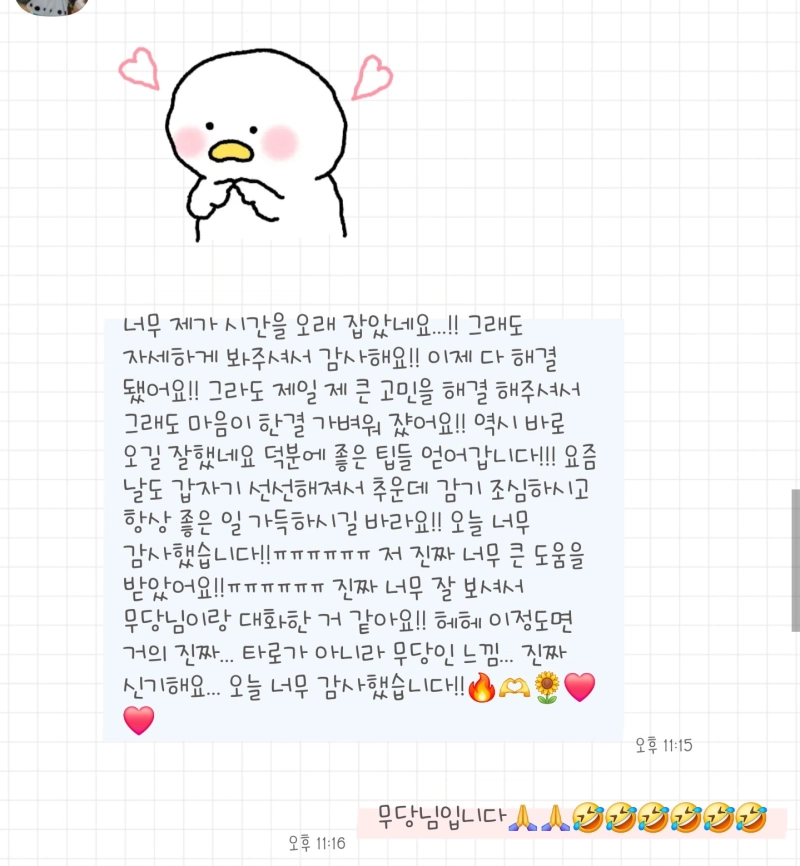 너무 제가 시간을 오래 잡았네요...!! 그래도
자세하게 봐주셔서 감사해요!! 이제 다 해결
됐어요!! 그라도 제일 제 큰 고민을 해결 해주셔서
그래도 마음이 한결 가벼워 쟜어요!! 역시 바로
오길 잘했네요 덕분에 좋은 팁들 얻어갑니다!!! 요즘
날도 갑자기 선선해져서 추운데 감기 조심하시고
항상 좋은 일 가득하시길 바라요!! 오늘 너무
감사했습니다!!ㅠㅠㅠㅠㅠㅠ 저 진짜 너무 큰 도움을
받았어요!!ㅠㅠㅠㅠㅠㅠ 진짜 너무 잘 보셔서
무당님이랑 대화한 거 같아요!! 헤헤 이정도면
거의 진짜... 타로가 아니라 무당인 느낌... 진짜
신기해요... 오늘 너무 감사했습니다!!🔥🫶🌻❤️
❤️
오후 11:15
무당님입니다🙏🙏🤣🤣🤣🤣🤣🤣
오후 11:16